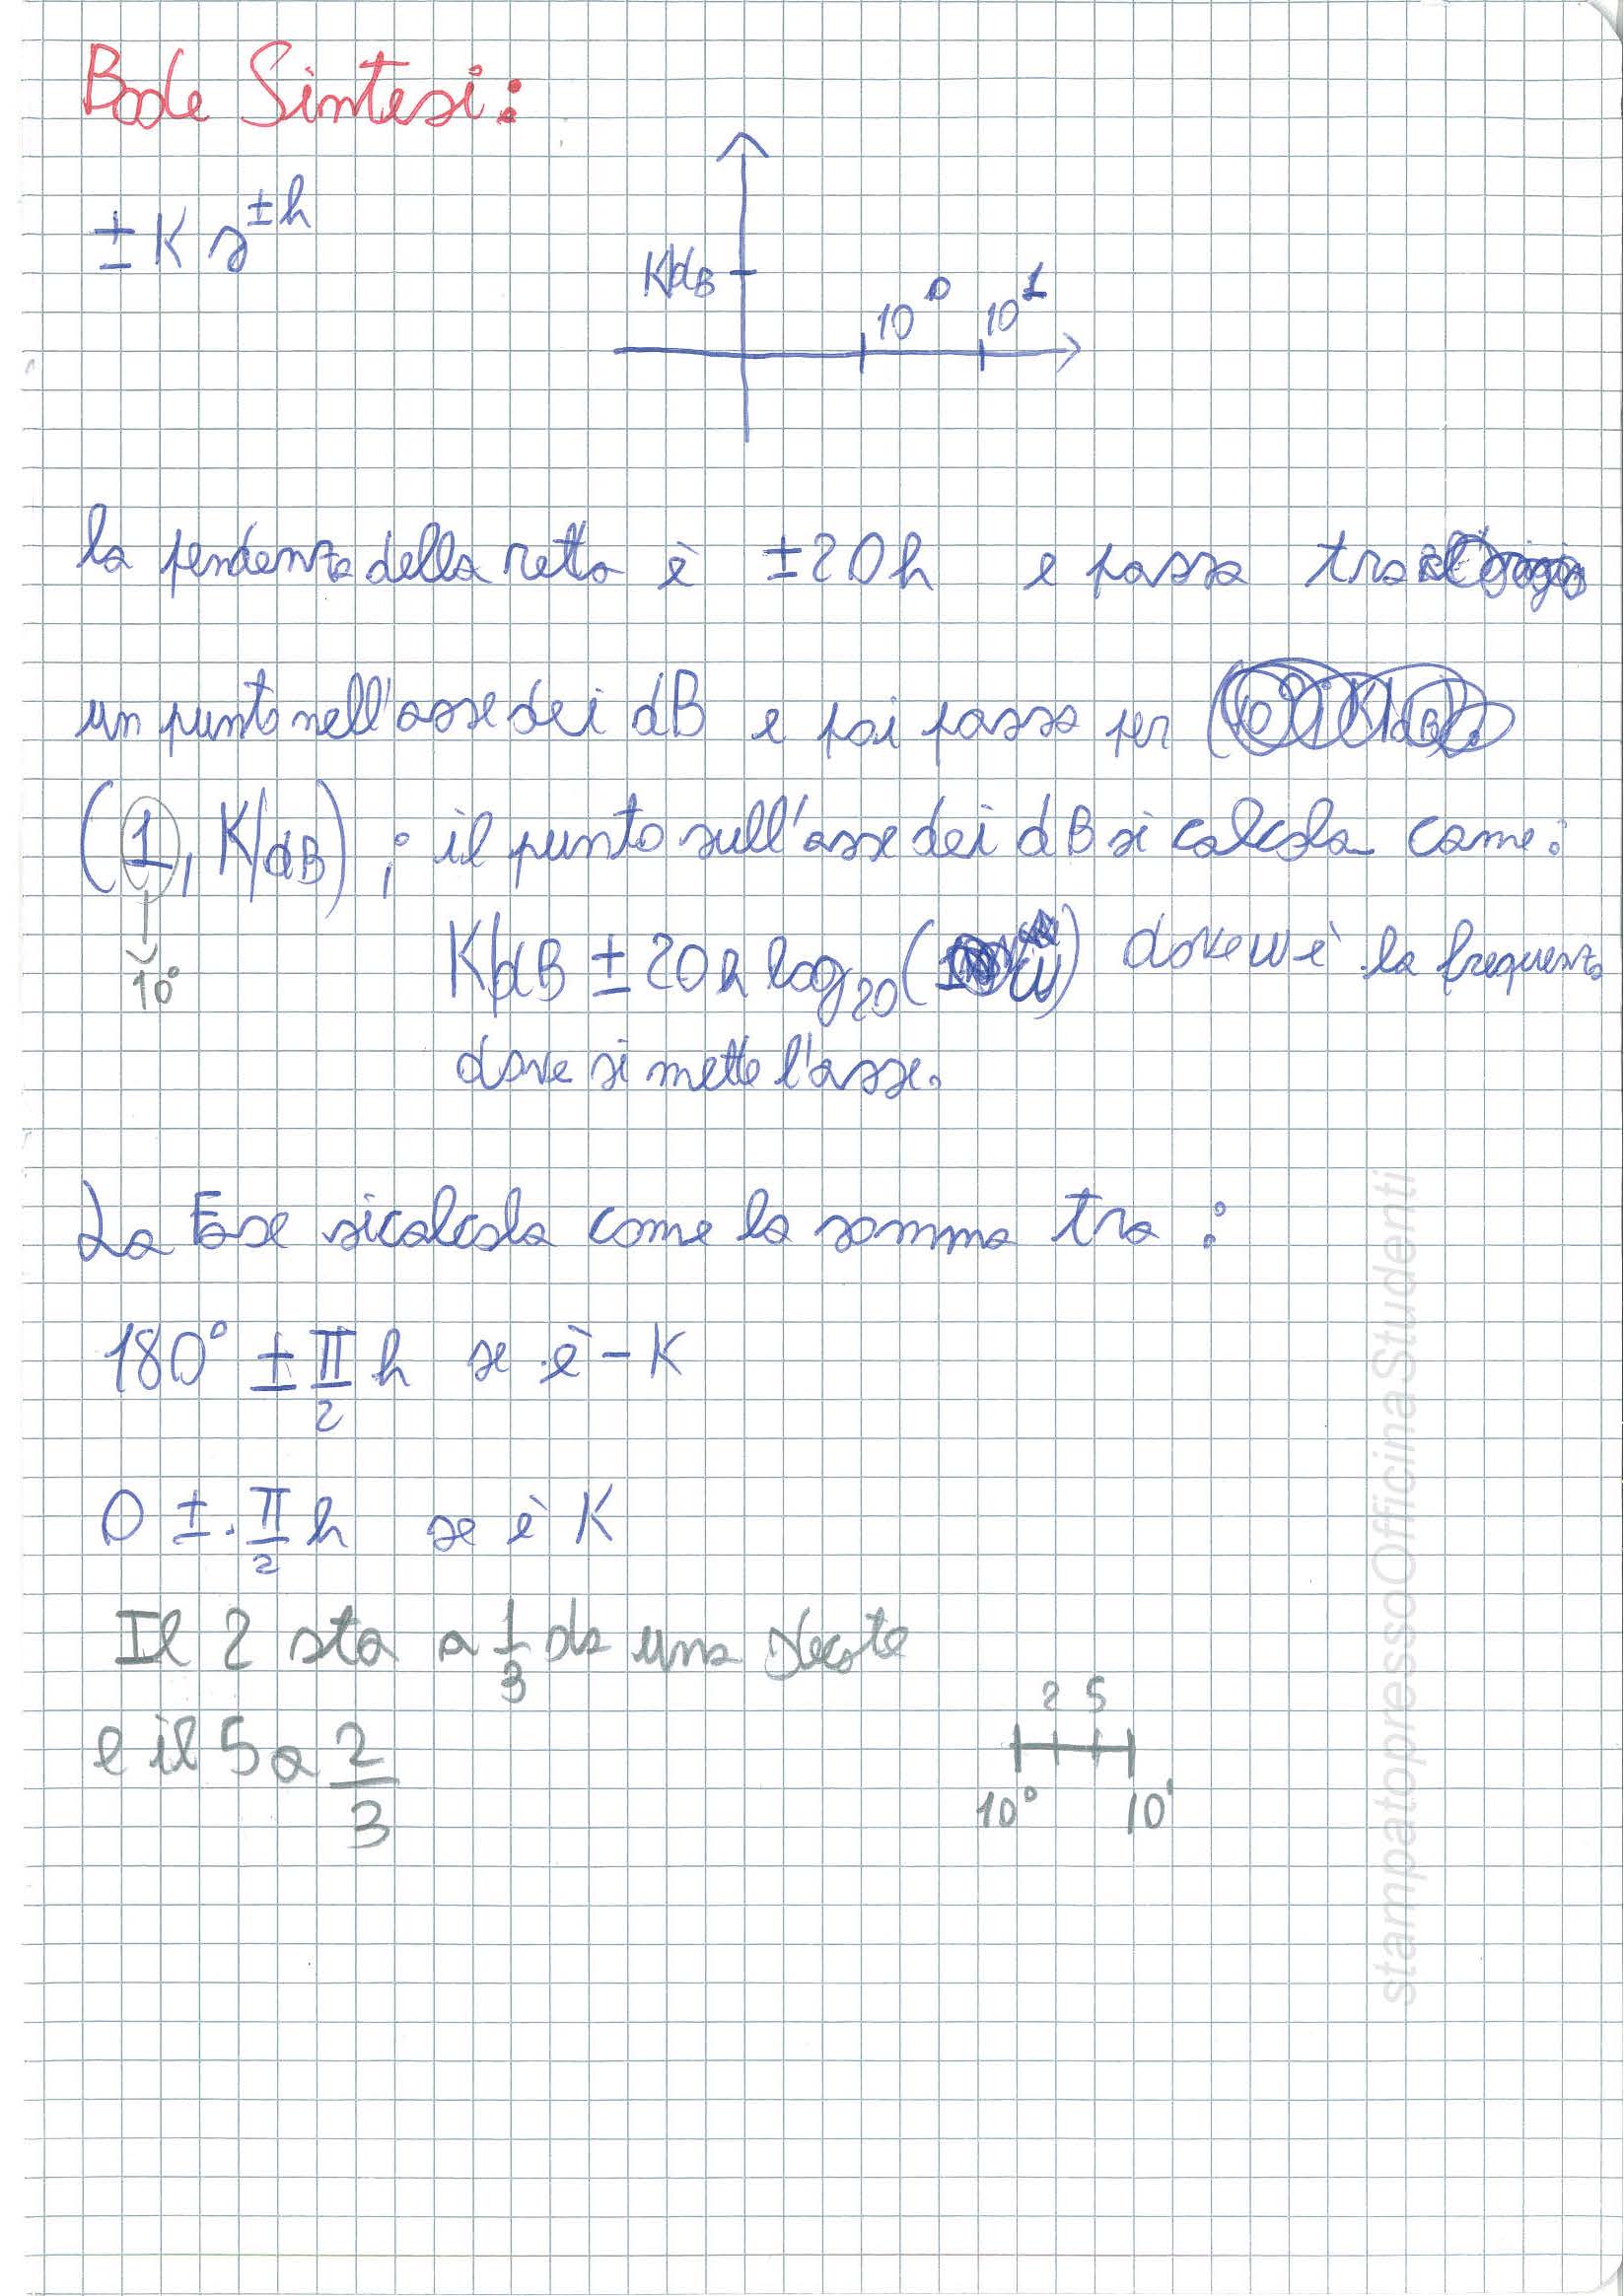 Bode Sintesi:
± K s^±h
K|dB
10^0 10^1
la pendenza della retta è ±20h e passa tra
un punto nell'asse dei dB e poi passa per
(1, K|dB) ; il punto sull'asse dei dB si calcola come:
10^0
K|dB ± 20h log20(ω) dove ω è la frequenza
dove si mette l'asse.
La Fase si calcola come la somma tra :
180° ± π/2 h se è -K
0 ± π/2 h se è K
Il 2 sta a 1/3 da una decate
e il 5 a 2/3
2 5
10^0 10^1
stampatopressoOfficinaStudenti